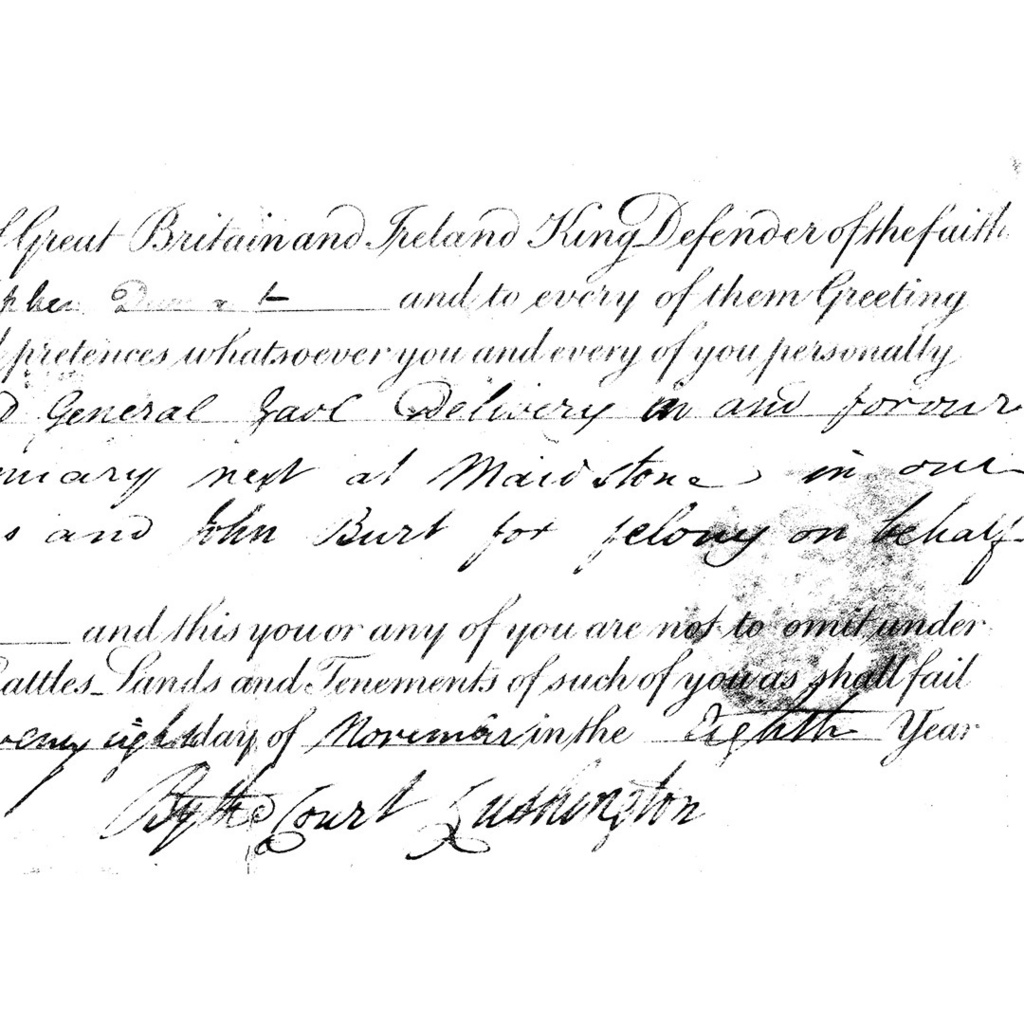 Great Britain and Ireland King Defender of the faith
and to every of them Greeting
pretences whatsoever you and every of you personally
General Gaol Delivery in and for our
next at Maidstone in our
s and John Burt for felony on behalf
and this you or any of you are not to omit under
Lands and Tenements of such of you as shall fail
eight day of November in the Eighth Year
By the Court Lushington